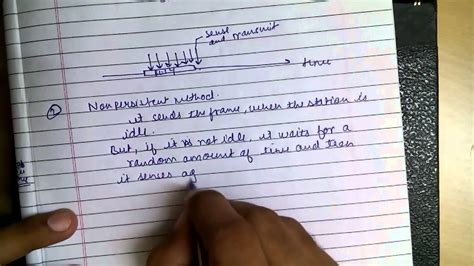 sense
and transmit
time
② Nonpersistent Method.
it sends the frame, when the station is
idle.
But, if it is not idle, it waits for a
random amount of time and then
it senses ag